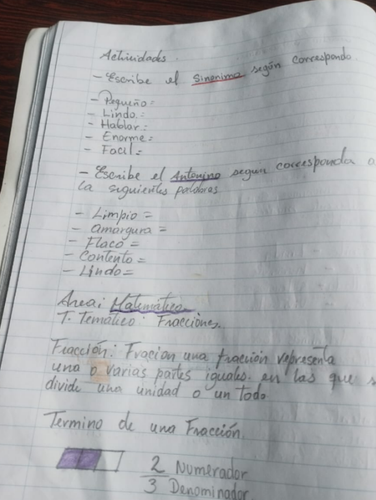 Actividades.
- Escribe el Sinonimo según corresponda
- Pequeño:
- Lindo:
- Hablar:
- Enorme:
- Facil:
- Escribe el Antonimo segun corresponda a
la siguientes palabras
- Limpio =
- amargura =
- Flaco =
- Contento =
- Lindo =
Area: Matematica
T. Tematico: Fracciones.
Fracción: Fracion una fracción representa
una o varias partes iguales en las que s
divide una unidad o un Todo
Termino de una Fracción
2 Numerador
3 Denominador